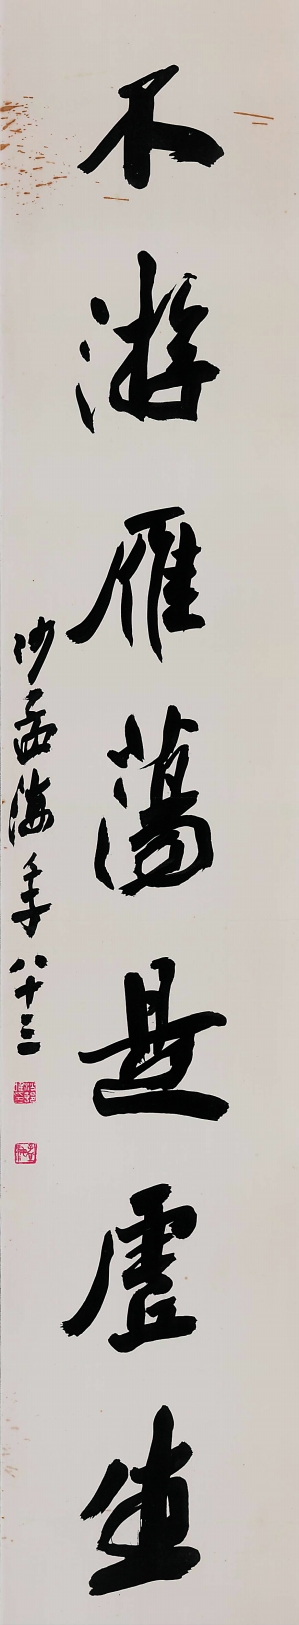 不游雁蕩是虛生
沙孟海年八十三